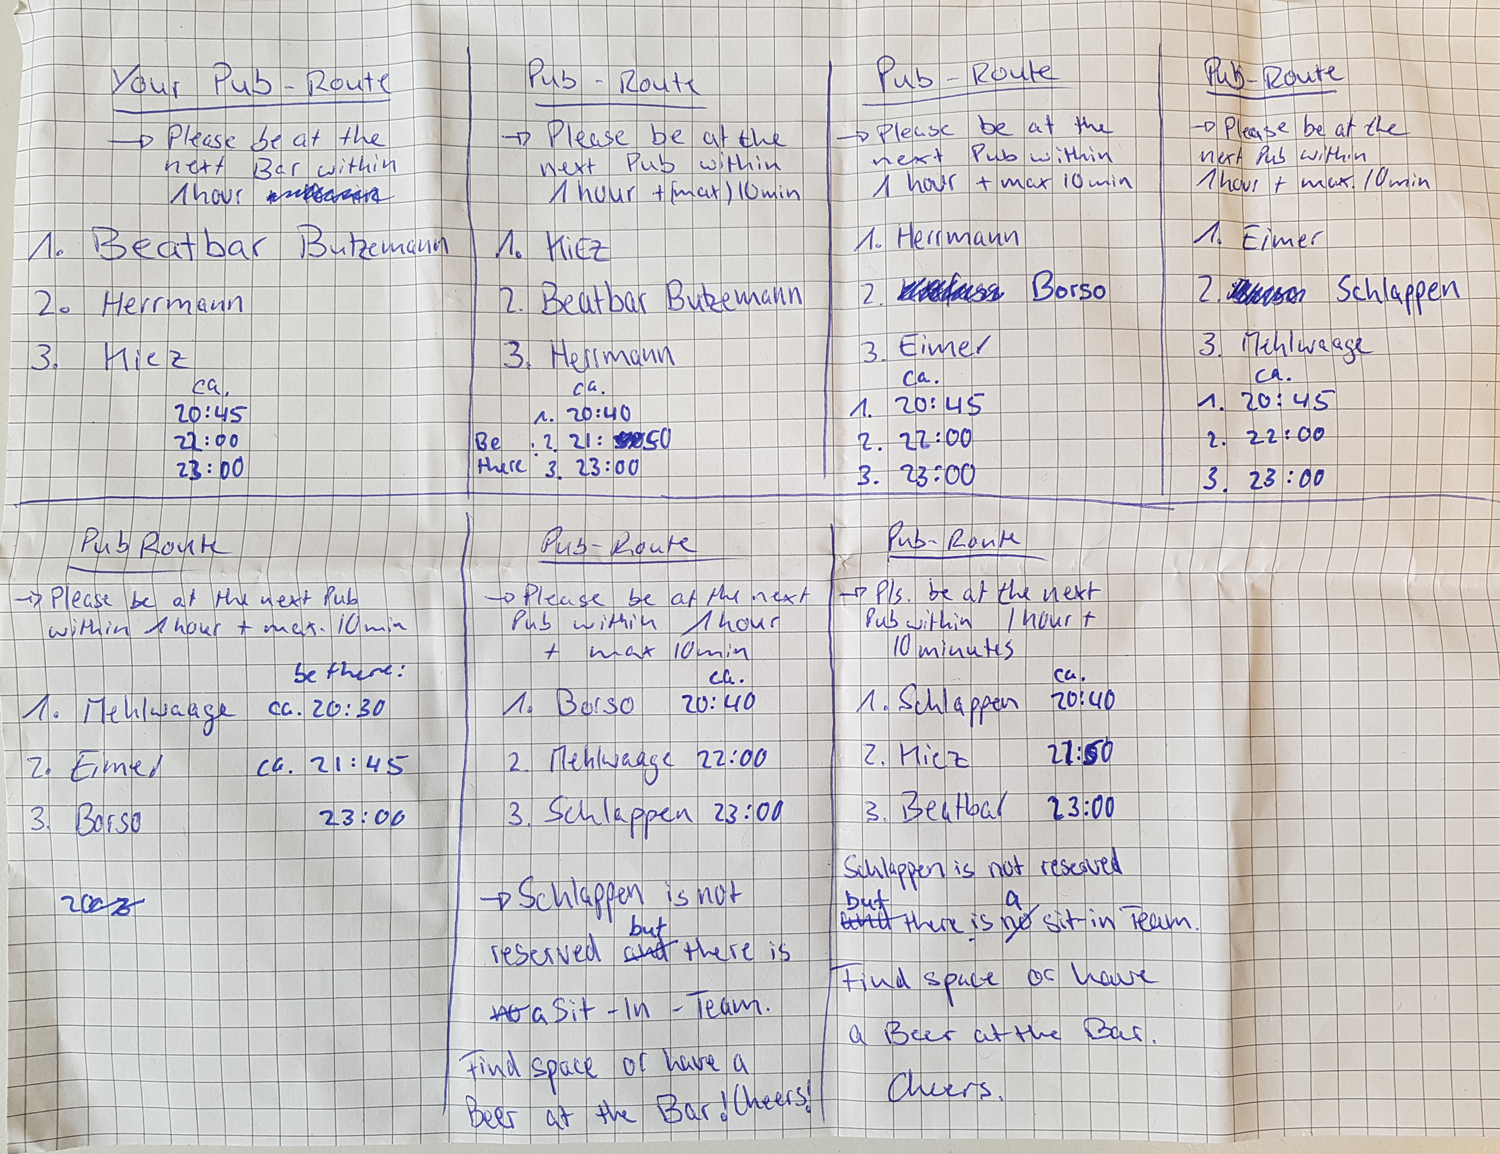 Your Pub-Route
→ Please be at the
next Bar within
1 hour
1. Beatbar Butzemann
2. Herrmann
3. Kiez
ca.
20:45
22:00
23:00
Pub-Route
→ Please be at the
next Pub within
1 hour + (max) 10min
1. Kiez
2. Beatbar Butzemann
3. Herrmann
ca.
1. 20:40
Be : 2. 21:50
there 3. 23:00
Pub-Route
→ Please be at the
next Pub within
1 hour + max 10min
1. Herrmann
2. Borso
3. Eimer
ca.
1. 20:45
2. 22:00
3. 23:00
Pub-Route
→ Please be at the
next Pub within
1 hour + max. 10min
1. Eimer
2. Schlappen
3. Mehlwaage
ca.
1. 20:45
2. 22:00
3. 23:00
Pub Route
→ Please be at the next Pub
within 1 hour + max. 10min
be there:
1. Mehlwaage ca. 20:30
2. Eimer ca. 21:45
3. Borso 23:00
Pub-Route
→ Please be at the next
Pub within 1 hour
+ max 10min
ca.
1. Borso 20:40
2. Mehlwaage 22:00
3. Schlappen 23:00
→ Schlappen is not
but
reserved and there is
no a Sit-In-Team.
Find space or have a
Beer at the Bar! Cheers!
Pub-Route
→ Pls. be at the next
Pub within 1 hour +
10 minutes
ca.
1. Schlappen 20:40
2. Kiez 21:50
3. Beatbar 23:00
Schlappen is not reserved
but a
and there is no sit-in Team.
Find space or have
a Beer at the Bar.
Cheers.